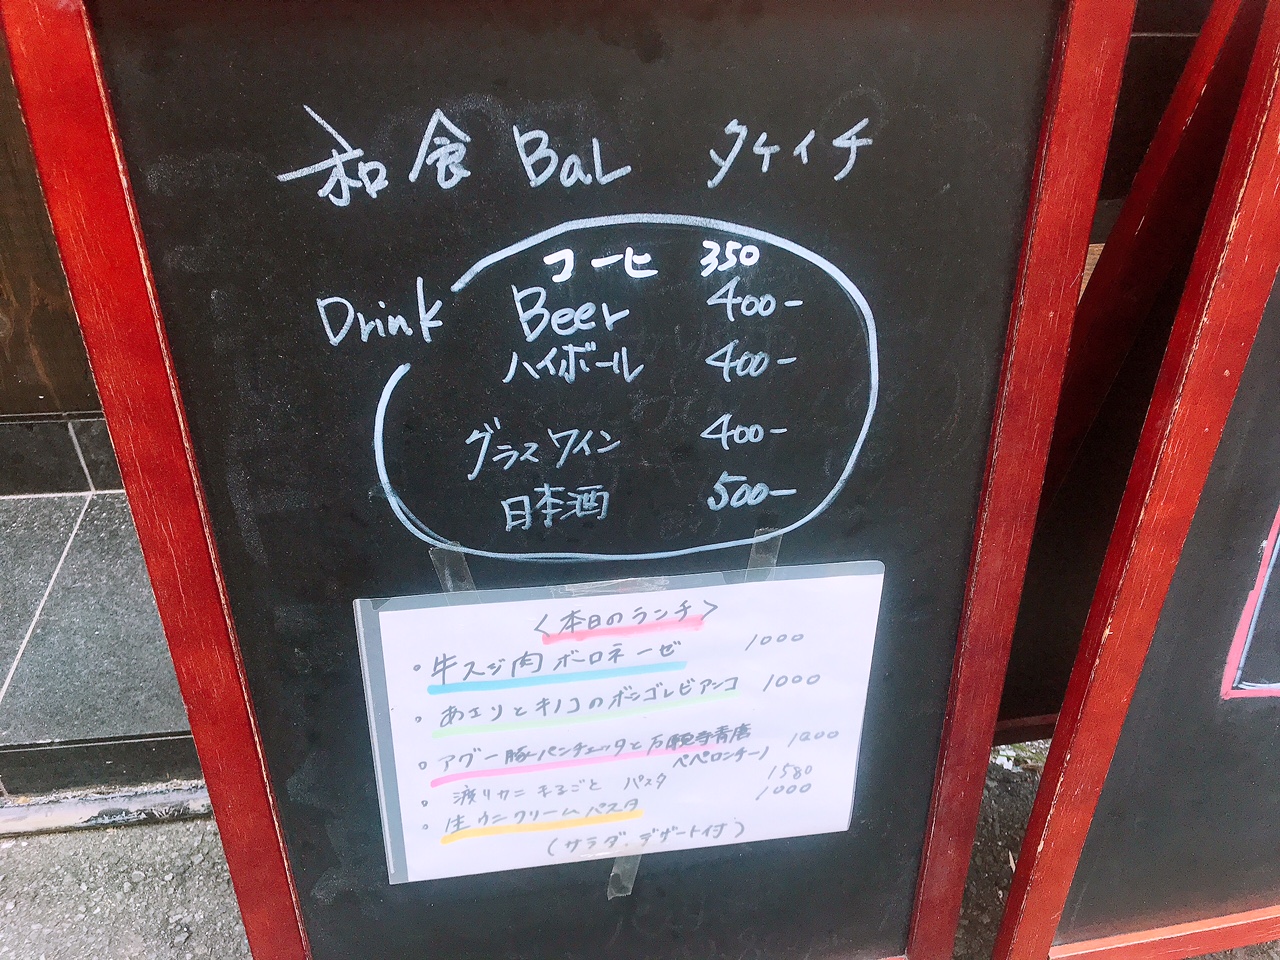 和食 BaL タケイチ
Drink
コーヒ 350
Beer 400-
ハイボール 400-
グラスワイン 400-
日本酒 500-
<本日のランチ>
・牛スジ肉ボーロネーゼ 1000
・あさりとキノコのボンゴレビアンコ 1000
・アグー豚パンチェッタと万願寺青唐 1200
ペペロンチーノ
・渡りカニまるごと パスタ 1580
・生ウニクリームパスタ 1000
(サラダ、デザート付)